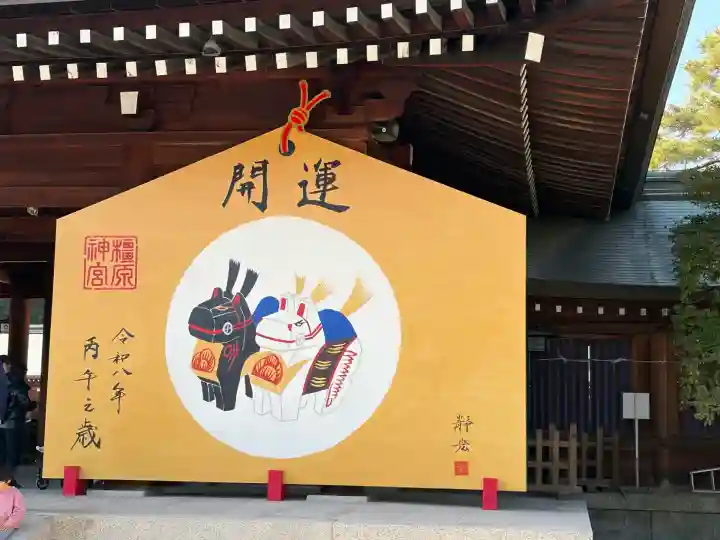 開運
橿原
神宮
令和八年
丙午之歳